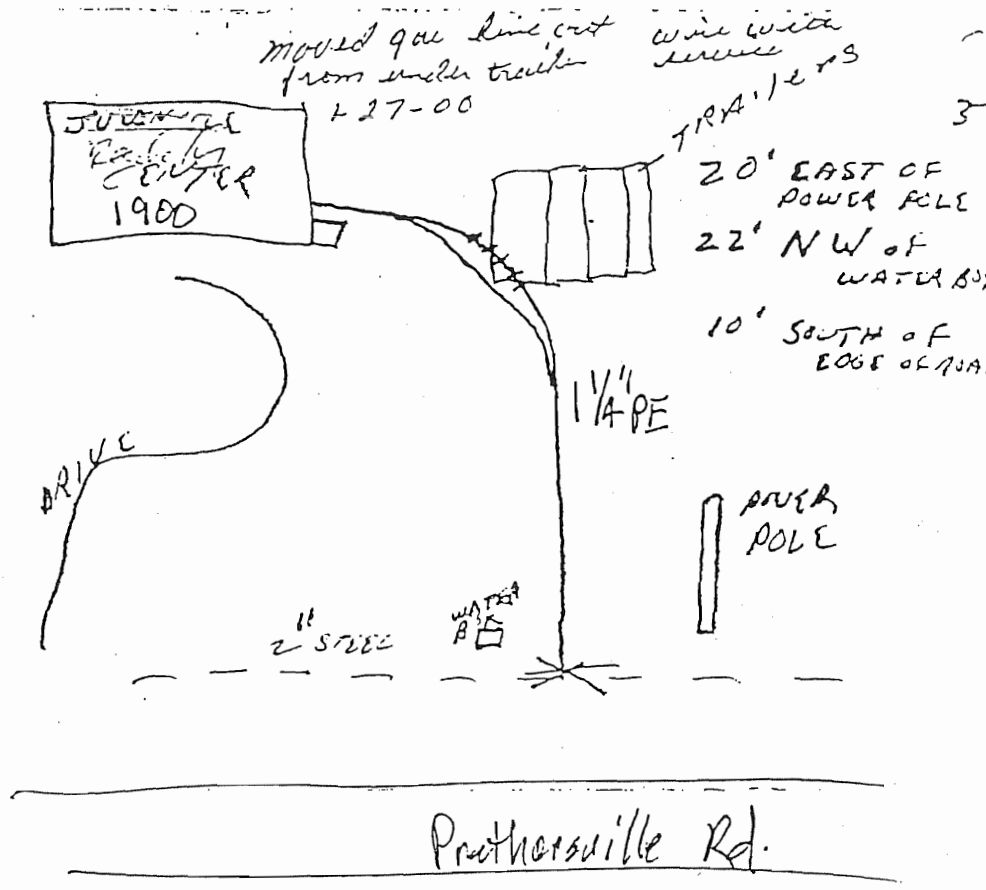 moved gas line out
from under trailer
1-27-00
wire with
service
TRAILERS
3
JUVENILE
CENTER
1900
20' EAST OF
POWER POLE
22' NW OF
WATER BOX
10' SOUTH OF
EDGE OF ROA
1 1/4" PE
DRIVE
POWER
POLE
WATER
B
2" STEEL
Prothersville Rd.